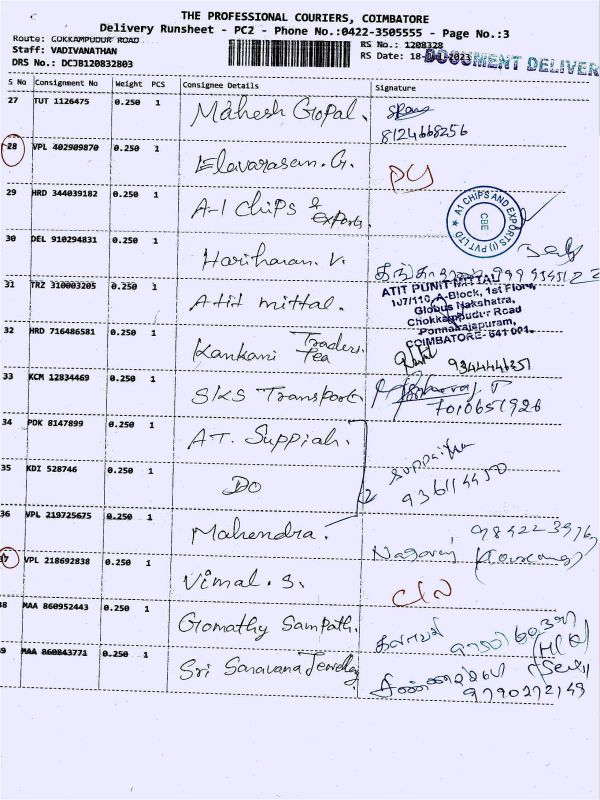 THE PROFESSIONAL COURIERS, COIMBATORE
Delivery Runsheet - PC2 - Phone No.:0422-3505555 - Page No.:3
Route: COKKAMPUDUR ROAD
Staff: VADIVANATHAN
DRS No.: DCJB120832803
RS No.: 1208328
RS Date: 18-
2023
DOCUMENT DELIVER
S No Consignment No Weight PCS Consignee Details Signature
27 TUT 1126475 0.250 1 Mahesh Gopal.
8124668256
28 VPL 402909870 0.250 1 Elavarasan. G.
29 HRD 344039182 0.250 1 A-1 Chips & Exports.
A1 CHIPS AND EXPORTS (I) PVT LTD
CBE
30 DEL 910294831 0.250 1 Hariharan. V.
31 TRZ 310003205 0.250 1 Atit mittal.
ATIT PUNIT MITTAL
107/110, A-Block, 1st Floor,
Globus Nakshatra,
Chokkampudur Road
Ponnairajapuram,
COIMBATORE- 641 001.
32 HRD 716486581 0.250 1 Kankani Tea Traders.
9344446351
33 KCM 12834469 0.250 1 SKS Transport.
7010651926
34 PDK 8147899 0.250 1 AT. Suppiah.
35 KDI 528746 0.250 1 Do
36 VPL 219725675 0.250 1 Mahendra.
Nagaraj
37 VPL 218692838 0.250 1 Vimal. S.
38 MAA 860952443 0.250 1 Gomathy Sampath.
39 MAA 860843771 0.250 1 Sri Saravana Jewellery
9790272149